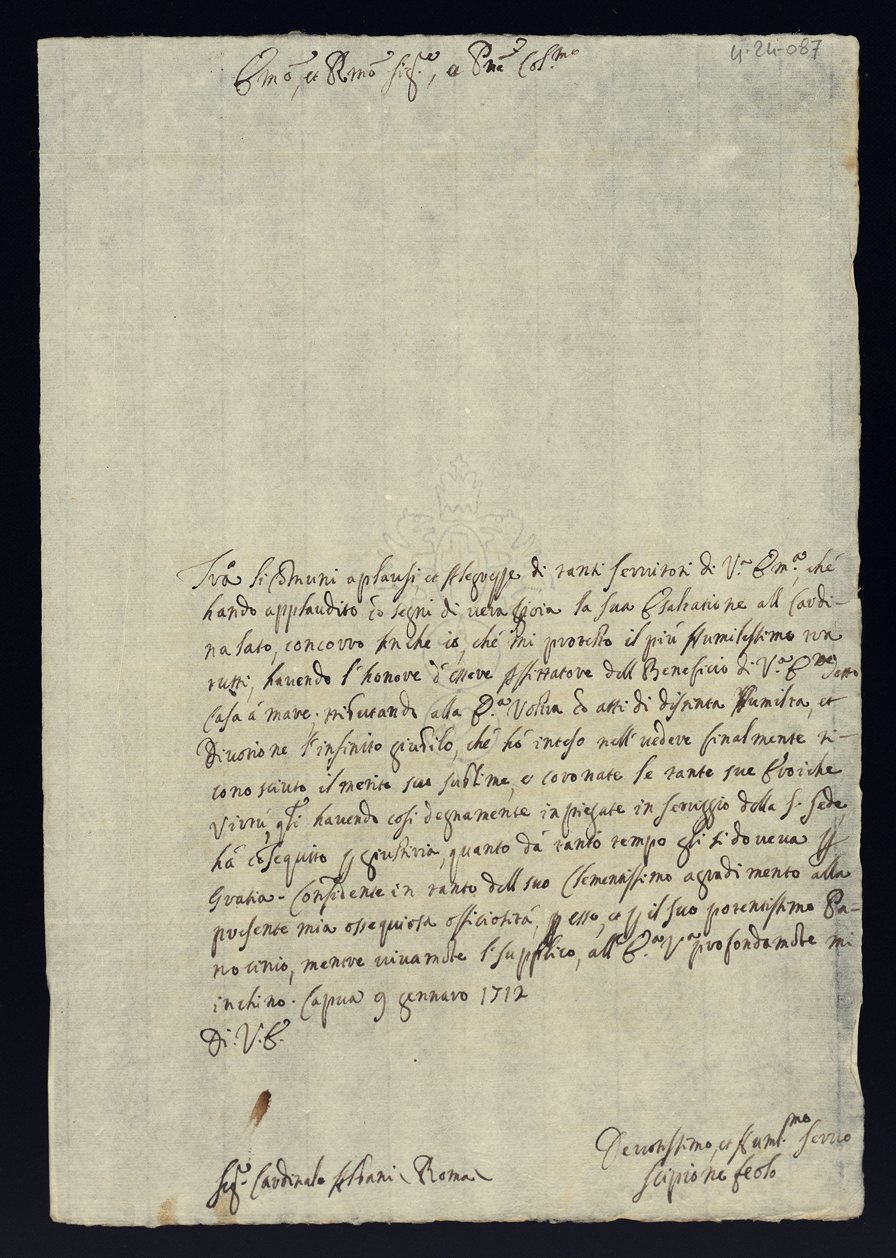 4-24-087
Em̃o, et Rm̃o Sig.re, e Pñe Col.mo
Frà li Cõmuni aplausi, et Allegresse di tanti Servitori di V.a Em.a, chè
hando applaudito cõ segni di vera Gioia la sua Esaltatione all Cardi-
nalato, concorro anche io, chè mi protesto il più Humilissimo trà
tutti, havendo l'honore d'essere Affittatore dell Beneficio di V.a E.za detto
Casa à mare; tributando alla E.a Vostra cõ atti di distinta Humiltà, et
Divotione l'infinito giubilo, chè hò inteso nell vedere finalmente ri-
conosciuto il merito suo sublime, e coronate le tante sue Eroiche
Virtù, qli havendo così degnamente inpiegate in servggio della S. Sede,
hà cõsequito p giustitia, quanto dà tanto tempo gli si doveva p
Gratia. Confidente in tanto dell suo Clementissimo agradimento alla
presente mia ossequiosa officiosità, p esso, et p il suo potentissimo Pa-
trocinio, mentre vivamẽte l'supplico, all E.a V.a profondamẽte mi
inchino. Capua 9 gennaro 1712
Di V. E.
Devotissimo, et Humil.mo Servo
Sig.r Cardinale Albani Roma
Scipione Feolo